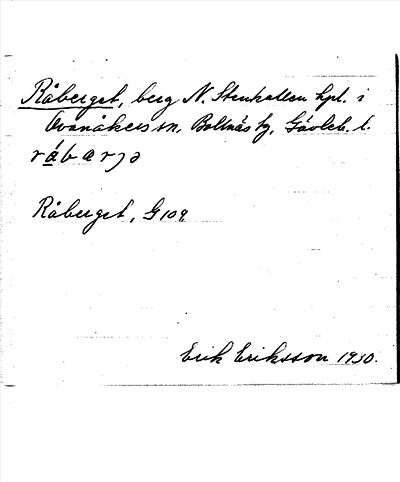 Råberget, berg N. Stenhallen hpl. i
Ovanåkers sn, Bollnäs tg, Gävleb. l.
råbarjə
Råberget, G 109.
Erik Eriksson 1930.